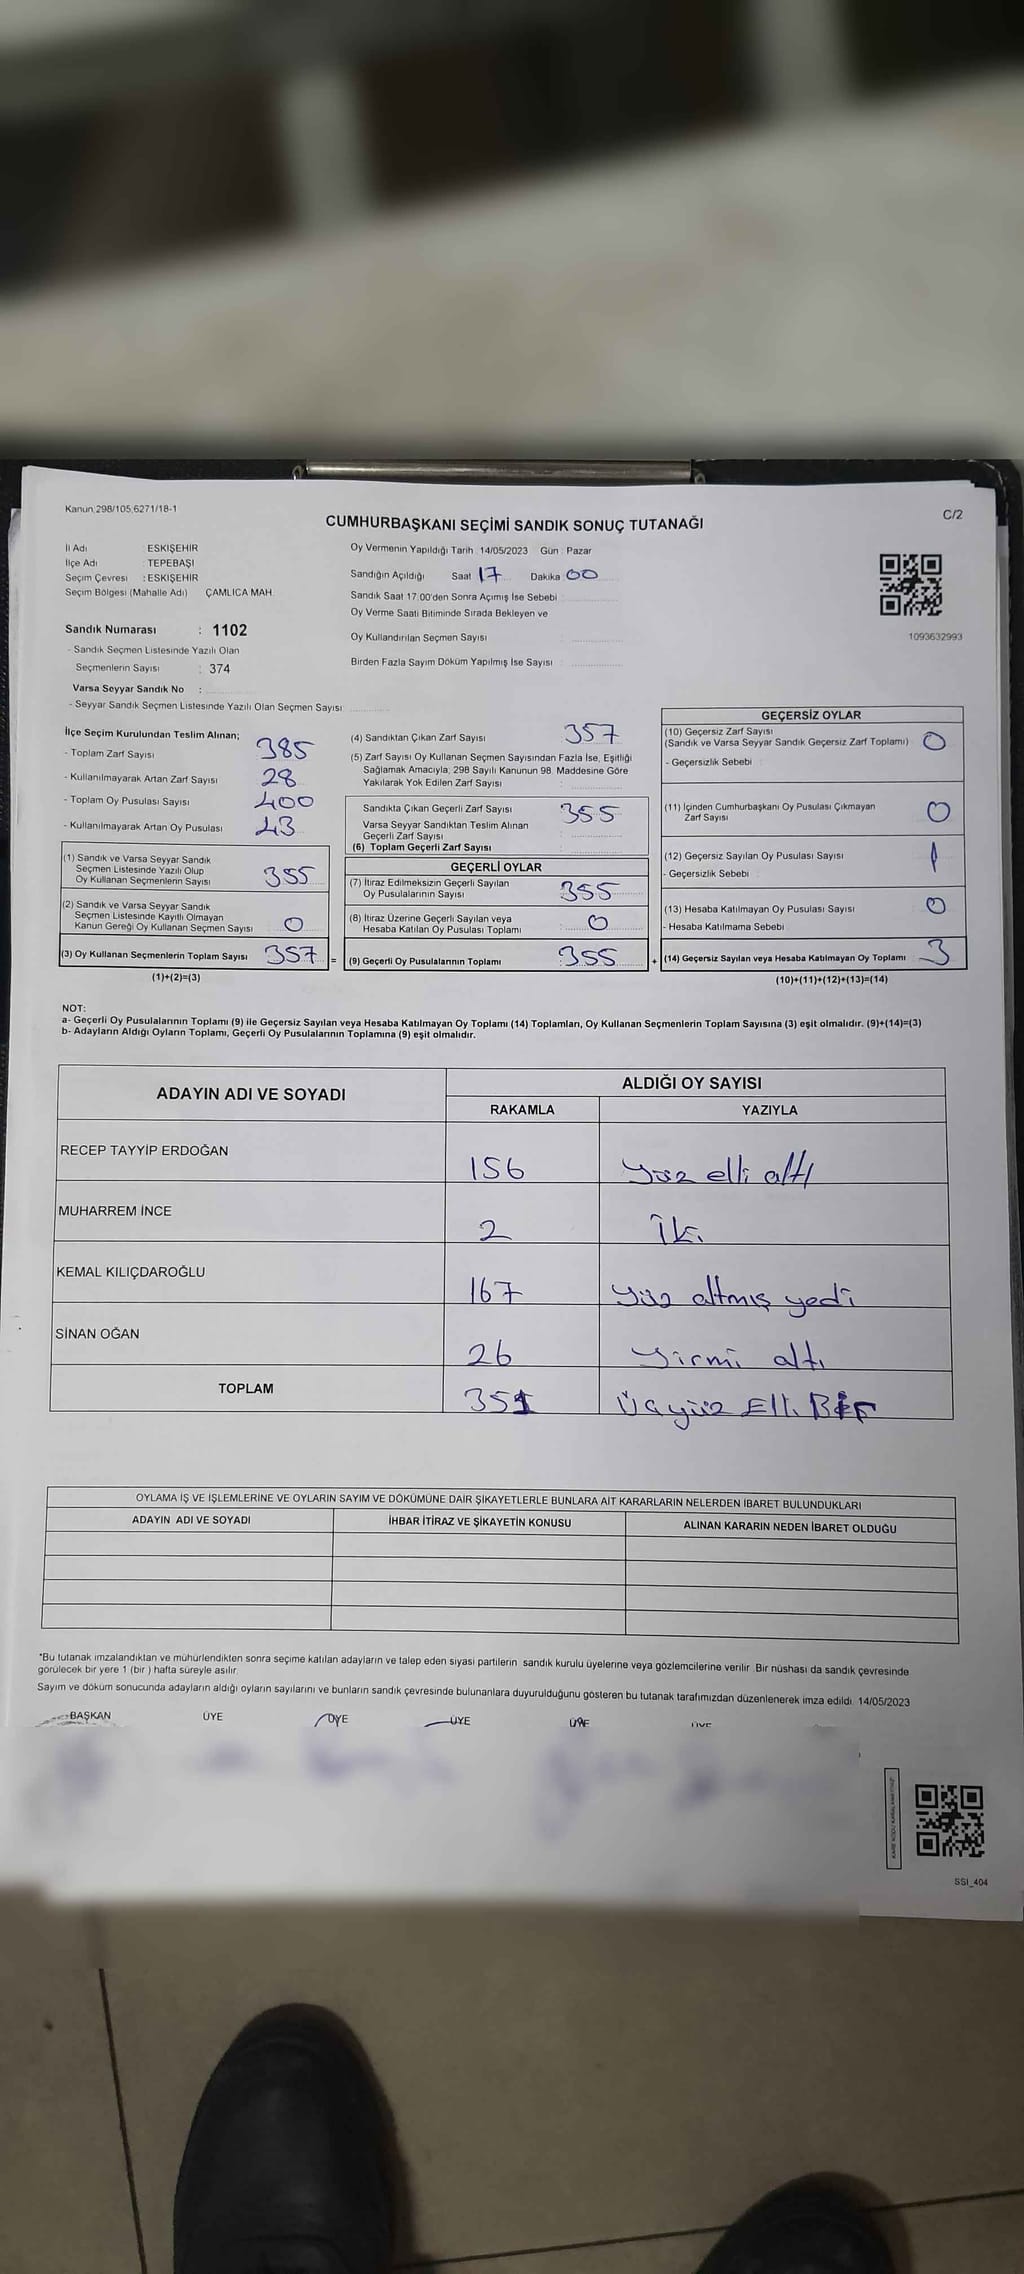 Kanun 298/105,6271/18-1
C/2
CUMHURBAŞKANI SEÇİMİ SANDIK SONUÇ TUTANAĞI
İl Adı : ESKİŞEHİR
İlçe Adı : TEPEBAŞI
Seçim Çevresi : ESKİŞEHİR
Seçim Bölgesi (Mahalle Adı) ÇAMLICA MAH.
Sandık Numarası : 1102
- Sandık Seçmen Listesinde Yazılı Olan
Seçmenlerin Sayısı : 374
Varsa Seyyar Sandık No :
- Seyyar Sandık Seçmen Listesinde Yazılı Olan Seçmen Sayısı
Oy Vermenin Yapıldığı Tarih 14/05/2023 Gün : Pazar
Sandığın Açıldığı Saat 17 Dakika 00
Sandık Saat 17:00'den Sonra Açımış İse Sebebi
Oy Verme Saati Bitiminde Sırada Bekleyen ve
Oy Kullandırılan Seçmen Sayısı
Birden Fazla Sayım Döküm Yapılmış İse Sayısı
1093632993
İlçe Seçim Kurulundan Teslim Alınan;
- Toplam Zarf Sayısı 385
- Kullanılmayarak Artan Zarf Sayısı 28
- Toplam Oy Pusulası Sayısı 400
- Kullanılmayarak Artan Oy Pusulası 43
(1) Sandık ve Varsa Seyyar Sandık
Seçmen Listesinde Yazılı Olup
Oy Kullanan Seçmenlerin Sayısı 355
(2) Sandık ve Varsa Seyyar Sandık
Seçmen Listesinde Kayıtlı Olmayan
Kanun Gereği Oy Kullanan Seçmen Sayısı 0
(3) Oy Kullanan Seçmenlerin Toplam Sayısı 357 =
(1)+(2)=(3)
(4) Sandıktan Çıkan Zarf Sayısı 357
(5) Zarf Sayısı Oy Kullanan Seçmen Sayısından Fazla İse, Eşitliği
Sağlamak Amacıyla; 298 Sayılı Kanunun 98. Maddesine Göre
Yakılarak Yok Edilen Zarf Sayısı
Sandıkta Çıkan Geçerli Zarf Sayısı 355
Varsa Seyyar Sandıktan Teslim Alınan
Geçerli Zarf Sayısı
(6) Toplam Geçerli Zarf Sayısı
GEÇERLİ OYLAR
(7) İtiraz Edilmeksizin Geçerli Sayılan
Oy Pusulalarının Sayısı 355
(8) İtiraz Üzerine Geçerli Sayılan veya
Hesaba Katılan Oy Pusulası Toplamı 0
(9) Geçerli Oy Pusulalarının Toplamı 355 +
GEÇERSİZ OYLAR
(10) Geçersiz Zarf Sayısı
(Sandık ve Varsa Seyyar Sandık Geçersiz Zarf Toplamı) 0
- Geçersizlik Sebebi
(11) İçinden Cumhurbaşkanı Oy Pusulası Çıkmayan
Zarf Sayısı 0
(12) Geçersiz Sayılan Oy Pusulası Sayısı 1
- Geçersizlik Sebebi
(13) Hesaba Katılmayan Oy Pusulası Sayısı 0
- Hesaba Katılmama Sebebi
(14) Geçersiz Sayılan veya Hesaba Katılmayan Oy Toplamı 3
(10)+(11)+(12)+(13)=(14)
NOT:
a- Geçerli Oy Pusulalarının Toplamı (9) ile Geçersiz Sayılan veya Hesaba Katılmayan Oy Toplamı (14) Toplamları, Oy Kullanan Seçmenlerin Toplam Sayısına (3) eşit olmalıdır. (9)+(14)=(3)
b- Adayların Aldığı Oyların Toplamı, Geçerli Oy Pusulalarının Toplamına (9) eşit olmalıdır.
ADAYIN ADI VE SOYADI ALDIĞI OY SAYISI
RAKAMLA YAZIYLA
RECEP TAYYİP ERDOĞAN 156 yüz elli altı
MUHARREM İNCE 2 İki
KEMAL KILIÇDAROĞLU 167 yüz altmış yedi
SİNAN OĞAN 26 yirmi altı
TOPLAM 351 Üçyüz Elli Bir
OYLAMA İŞ VE İŞLEMLERİNE VE OYLARIN SAYIM VE DÖKÜMÜNE DAİR ŞİKAYETLERLE BUNLARA AİT KARARLARIN NELERDEN İBARET BULUNDUKLARI
ADAYIN ADI VE SOYADI İHBAR İTİRAZ VE ŞİKAYETİN KONUSU ALINAN KARARIN NEDEN İBARET OLDUĞU
*Bu tutanak imzalandıktan ve mühürlendikten sonra seçime katılan adayların ve talep eden siyasi partilerin sandık kurulu üyelerine veya gözlemcilerine verilir. Bir nüshası da sandık çevresinde
görülecek bir yere 1 (bir ) hafta süreyle asılır.
Sayım ve döküm sonucunda adayların aldığı oyların sayılarını ve bunların sandık çevresinde bulunanlara duyurulduğunu gösteren bu tutanak tarafımızdan düzenlenerek imza edildi. 14/05/2023
BAŞKAN ÜYE ÜYE ÜYE ÜYE ÜYE
SSI_404